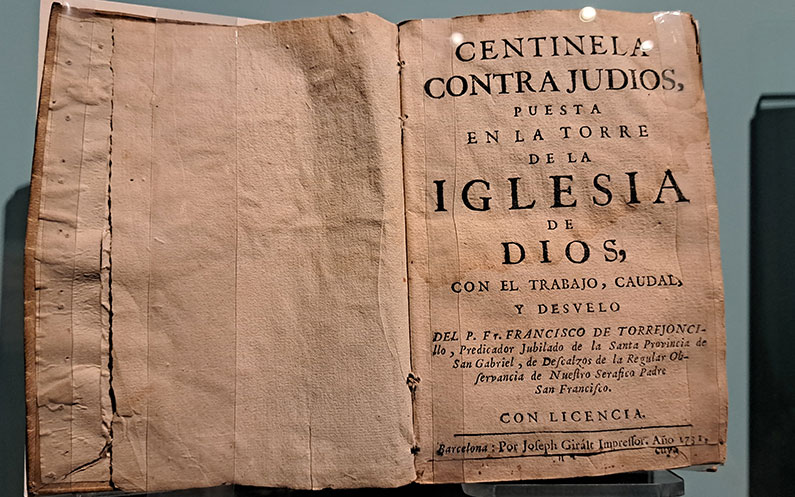 CENTINELA
CONTRA JUDIOS,
PUESTA
EN LA TORRE
DE LA
IGLESIA
DE
DIOS,
CON EL TRABAJO, CAUDAL,
Y DESVELO
DEL P. Fr. FRANCISCO DE TORREJONCI-
llo, Predicador Jubilado de la Santa Provincia de
San Gabriel, de Deſcalzos de la Regular Ob-
ſervancia de Nueſtro Serafico Padre
San Franciſco.
CON LICENCIA.
Barcelona: Por Joſeph Giràlt Impreſſor. Año 1731.